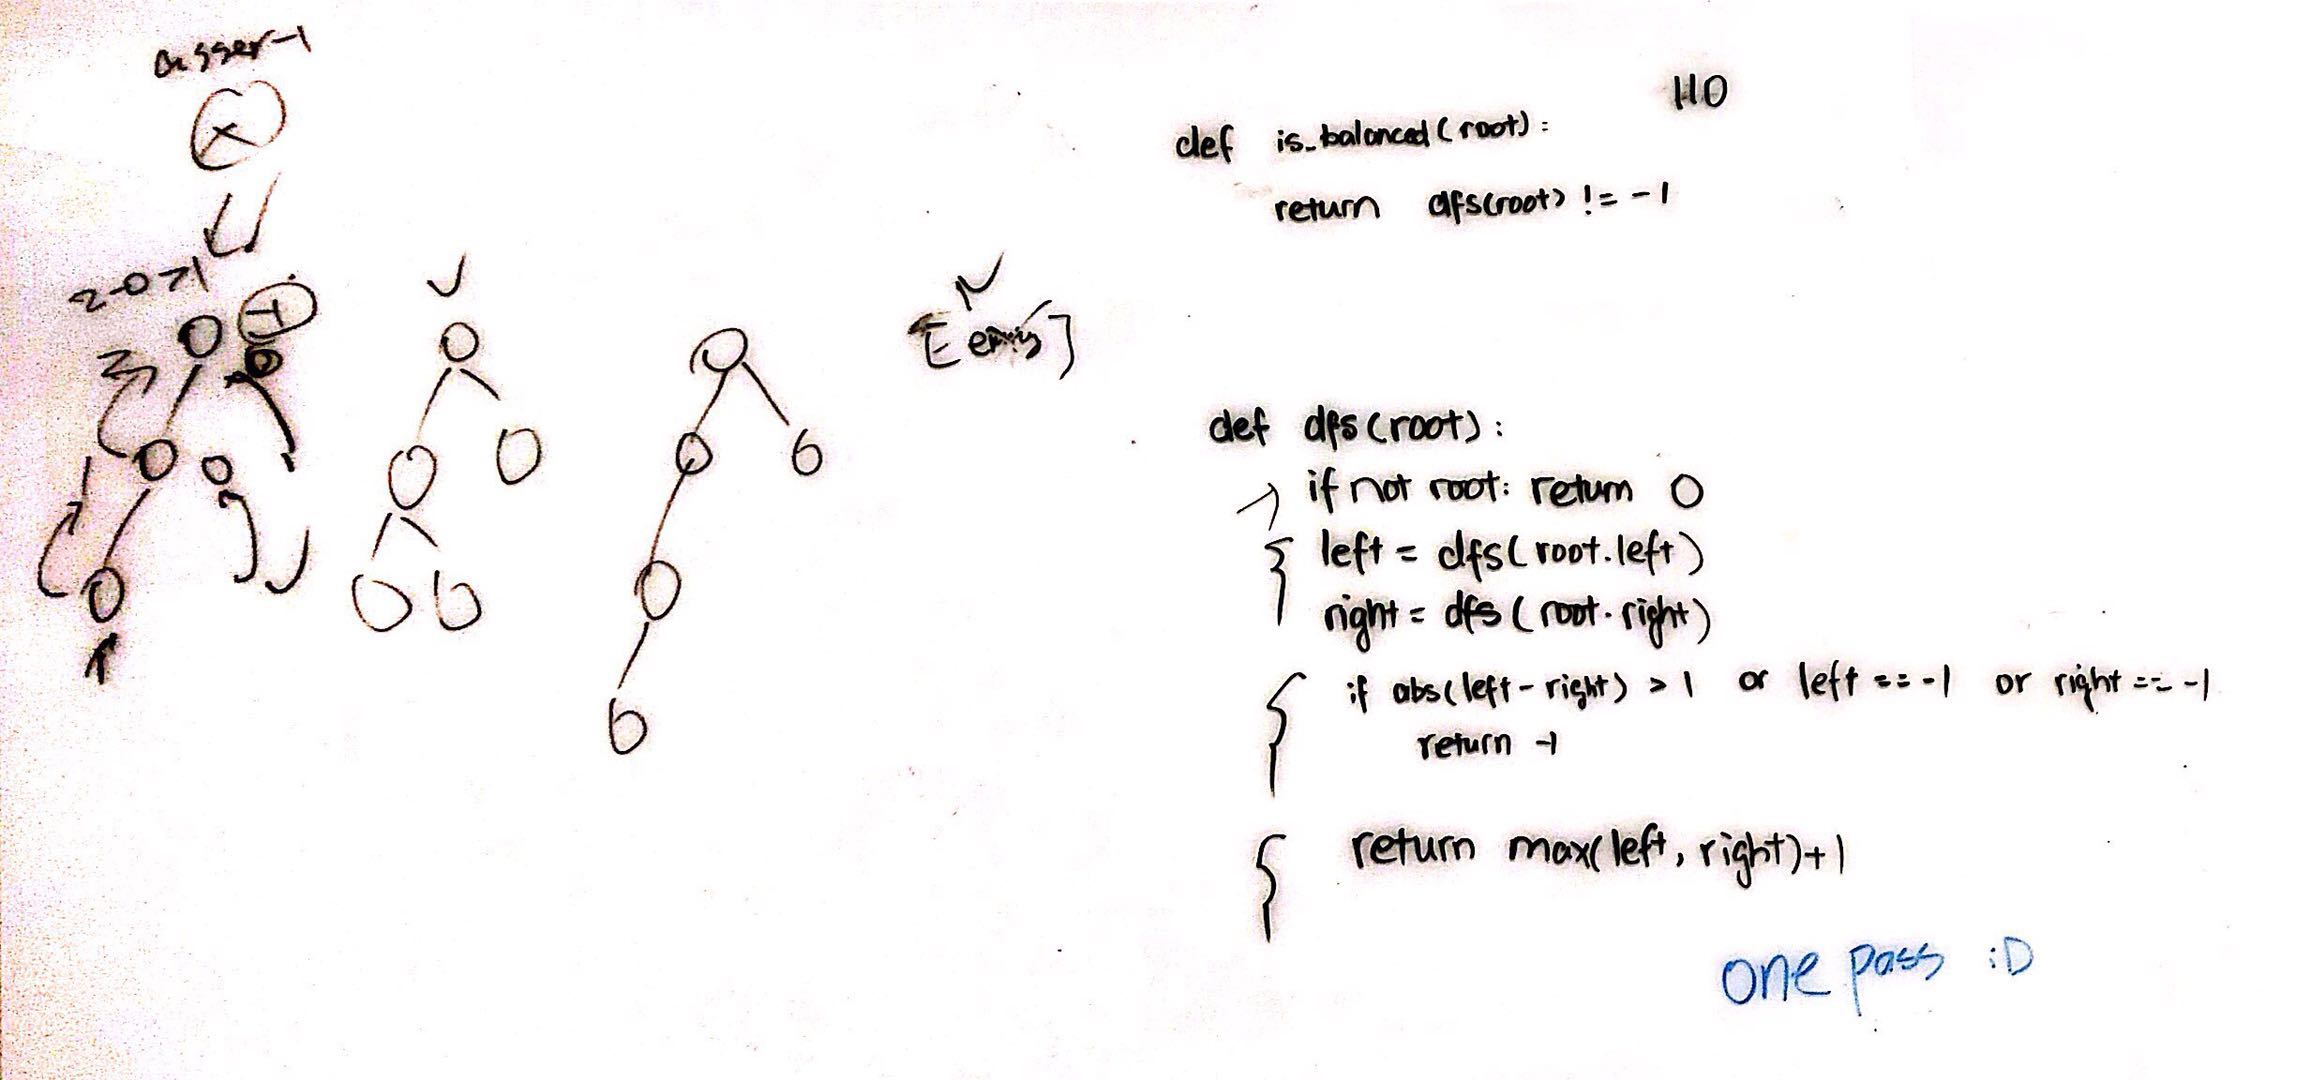 asser-1
2-0>1
[empty]
110
def is_balanced(root):
return dfs(root) != -1
def dfs(root):
if not root: return 0
left = dfs(root.left)
right = dfs(root.right)
if abs(left-right) > 1 or left == -1 or right == -1
return -1
return max(left, right)+1
one pass :D